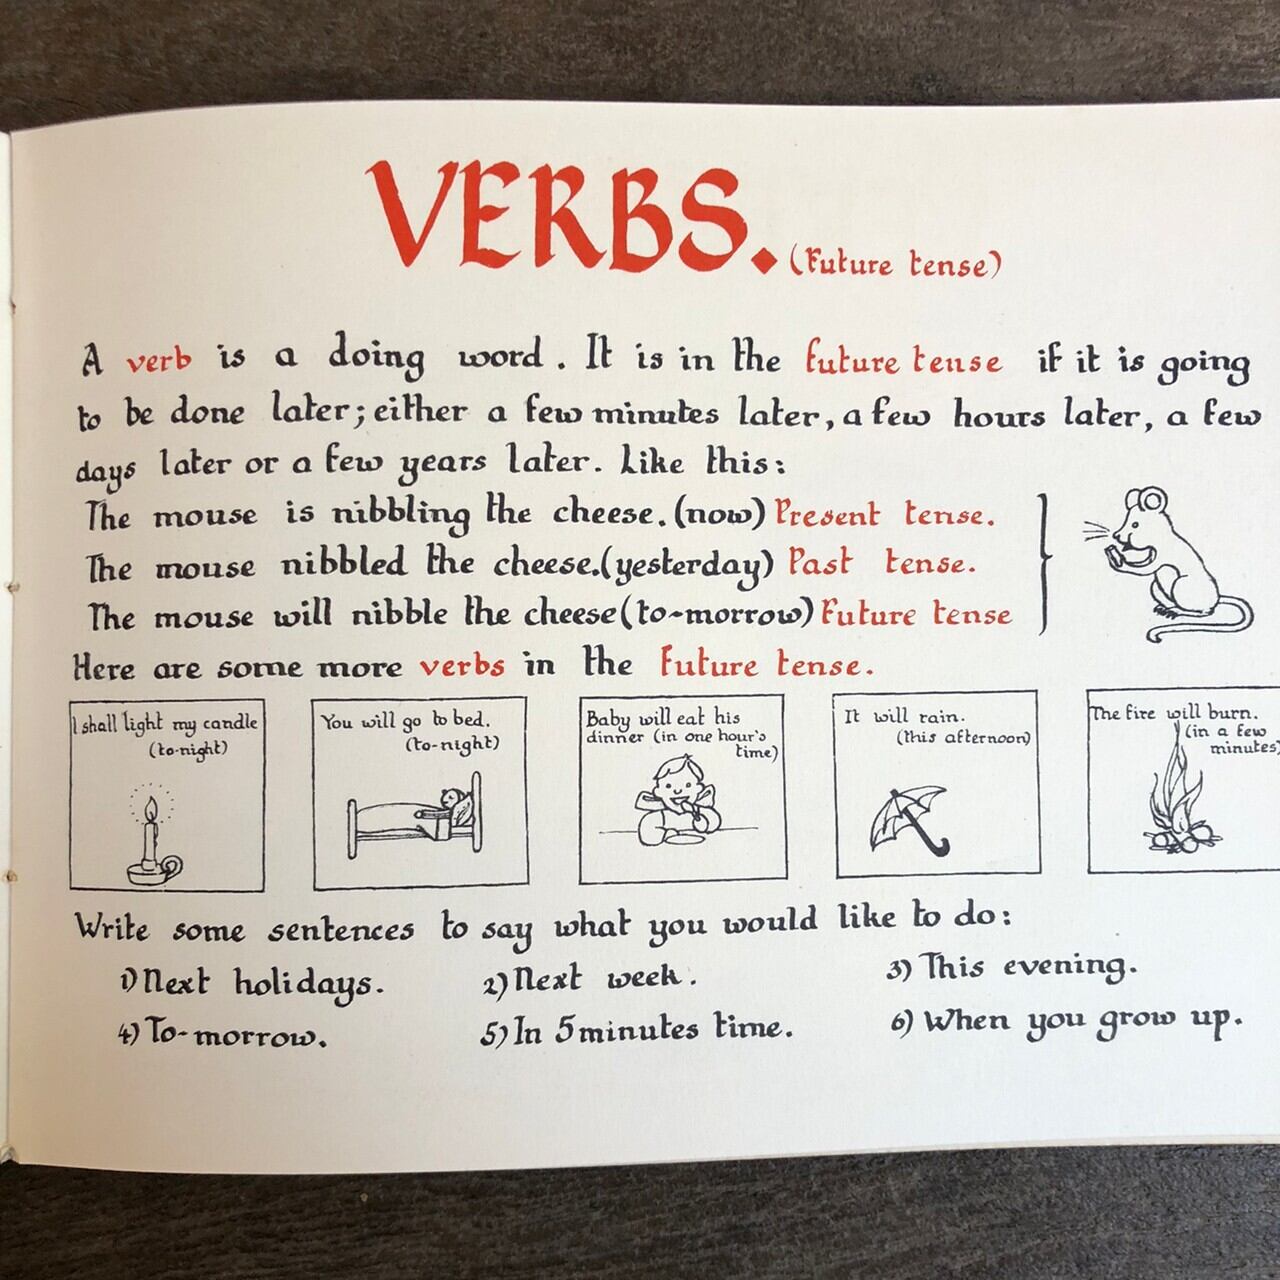 VERBS. (Future tense)
A verb is a doing word. It is in the future tense if it is going
to be done later; either a few minutes later, a few hours later, a few
days later or a few years later. Like this:
The mouse is nibbling the cheese. (now) Present tense.
The mouse nibbled the cheese. (yesterday) Past tense.
The mouse will nibble the cheese (to-morrow) Future tense
Here are some more verbs in the Future tense.
I shall light my candle
(to-night)
You will go to bed.
(to-night)
Baby will eat his
dinner (in one hour's
time)
It will rain.
(this afternoon)
The fire will burn.
(in a few
minutes)
Write some sentences to say what you would like to do:
1) Next holidays. 2) Next week. 3) This evening.
4) To-morrow. 5) In 5 minutes time. 6) When you grow up.